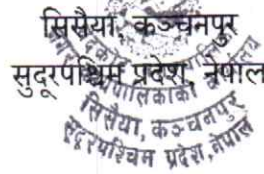 सिसैया, कञ्चनपुर
सुदूरपश्चिम प्रदेश, नेपाल
नगरपालिकाको कार्यालय
सिसैया, कञ्चनपुर
सुदूरपश्चिम प्रदेश, नेपाल